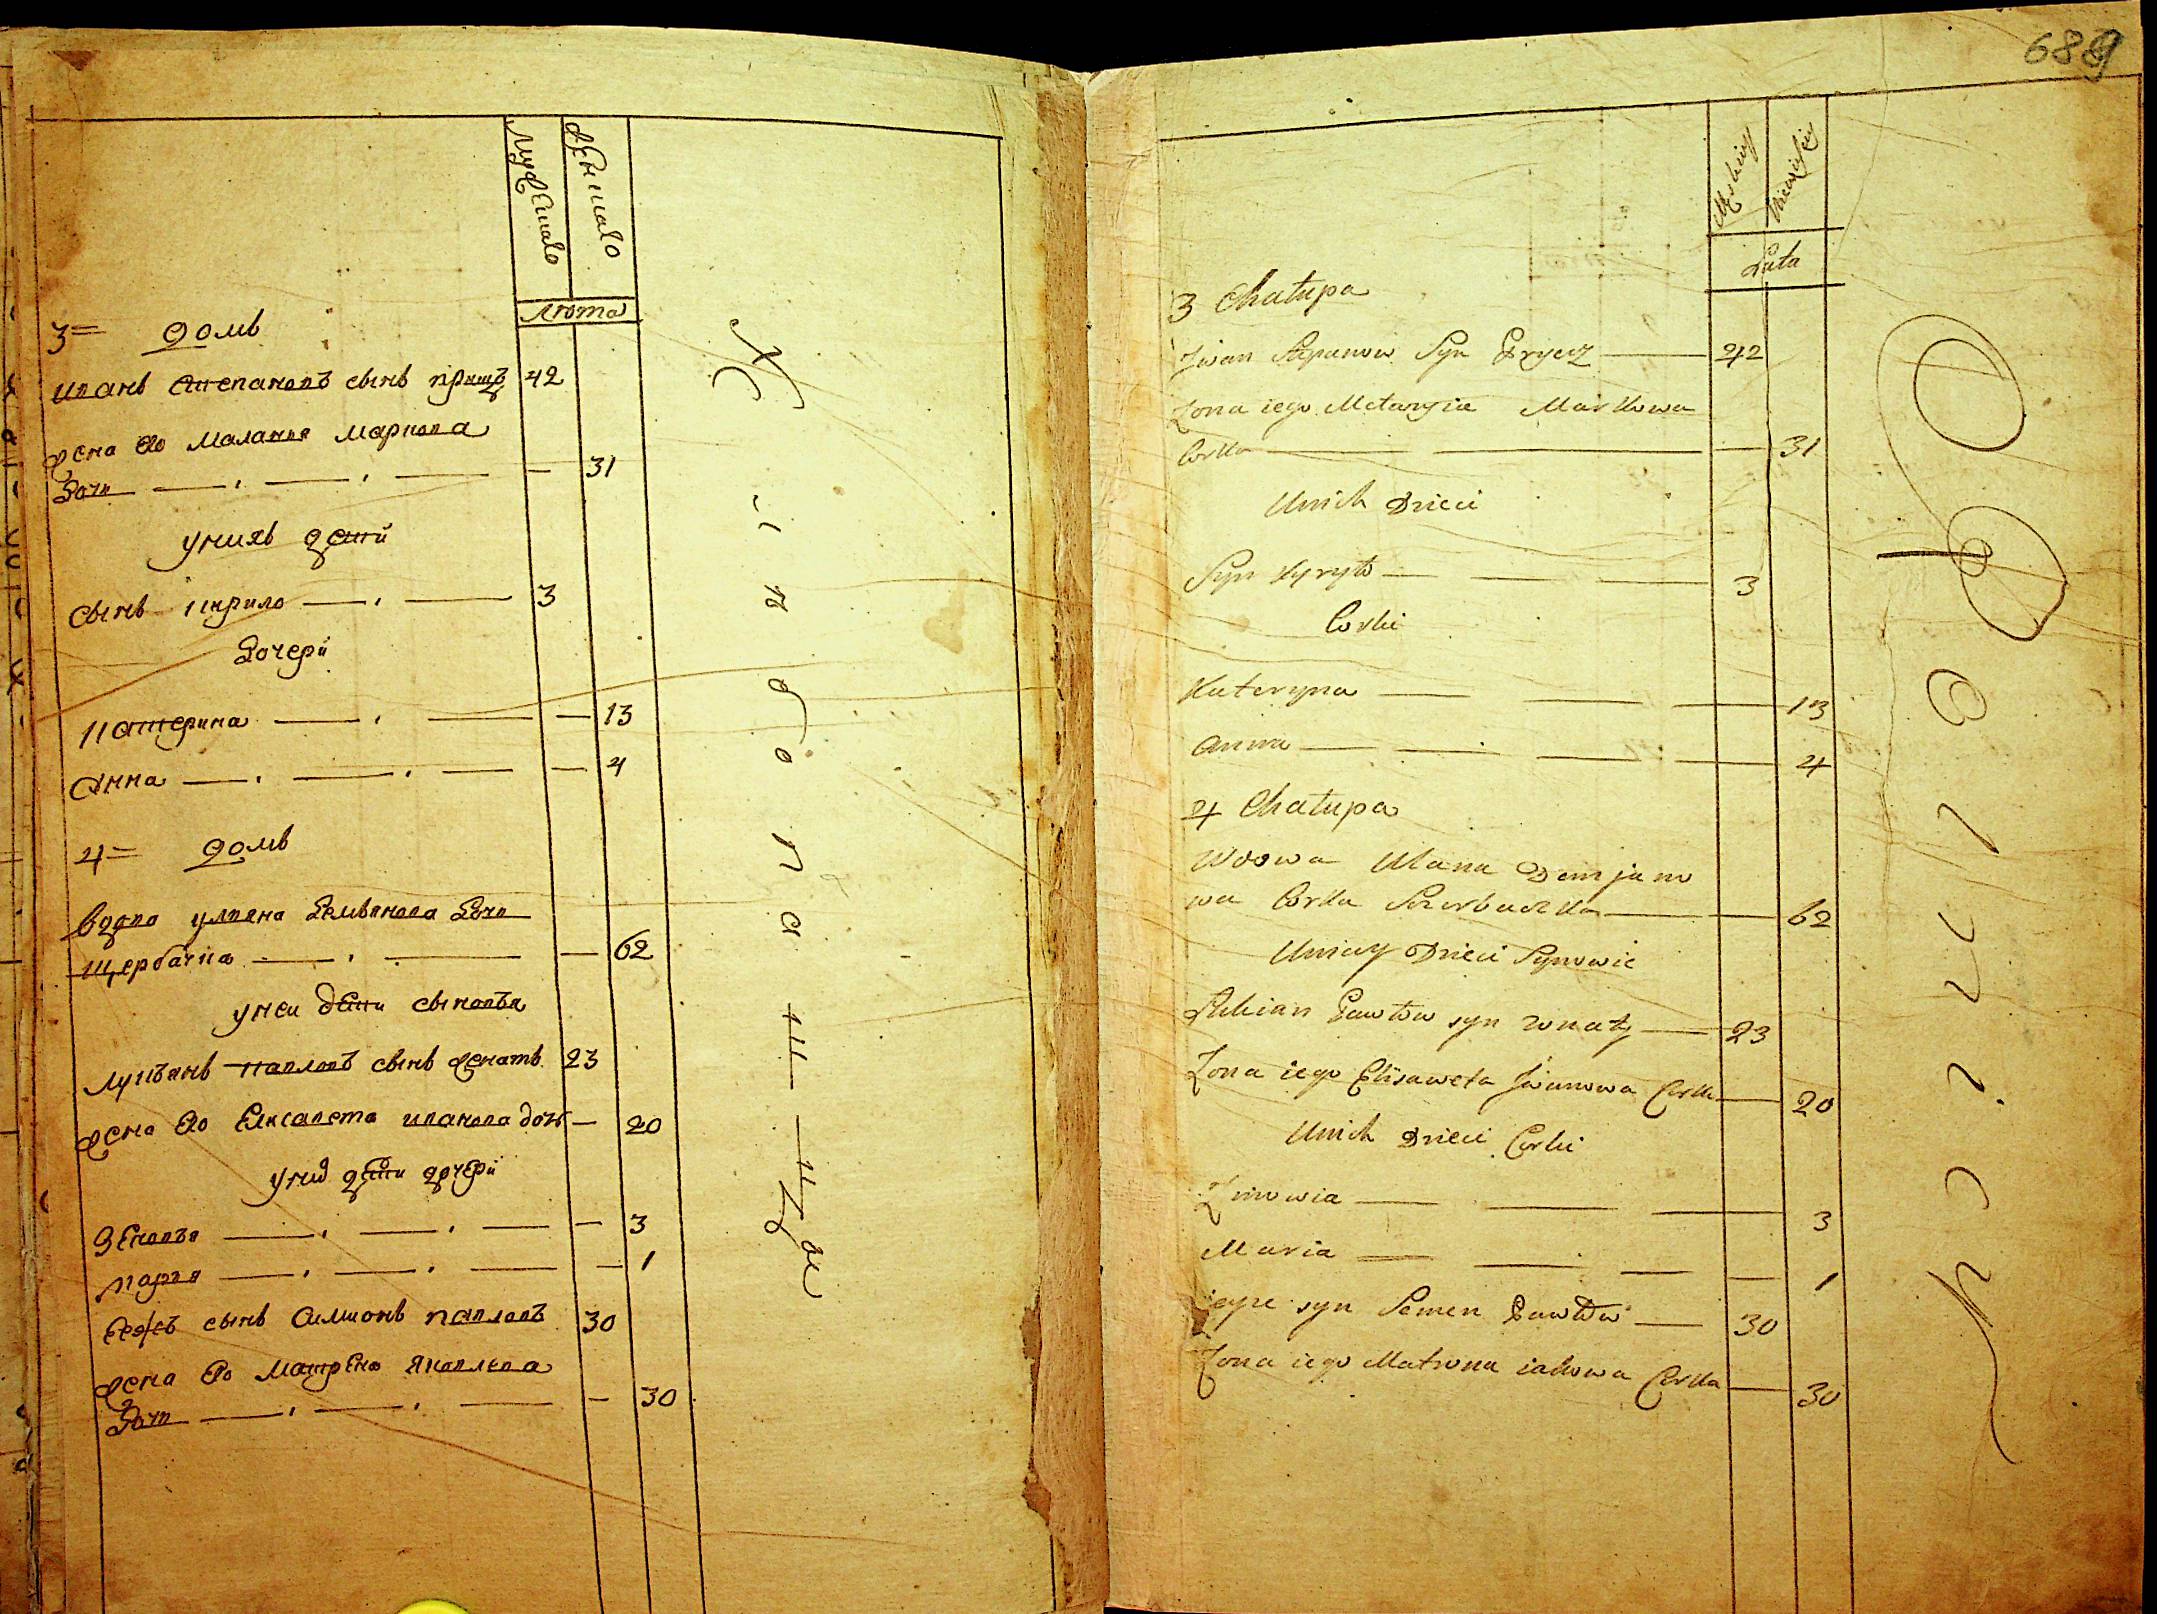 Мужеска
Женска
Лѣта
3= домъ
иванъ Степановъ сынъ прищъ 42
жена его Маланья Маркова
Дочь — 31
у нихъ дети
сынъ кирило 3
Дочери
катерина — 13
Анна — 4
4= домъ
вдова улияна Демьянова Дочь
щербачка — 62
у неи дети сыновья
лукъянъ павловъ сынъ женатъ 23
жена его Елисавета иванова дочь — 20
у них дети дочери
Зеновья — 3
марья — 1
сынъ Симионъ павловъ 30
жена его Матрена Яковлева
Дочь — 30
689
Męskiey
Niewieściey
Lata
3 Chałupa
Jwan Stepanow Syn Prycz 42
Zona iego Melanyia Markowa
Corka 31
U nich Dzieci
Syn Kyryło 3
Corki
Kateryna 13
Anna 4
4 Chałupa
Wdowa Ulana Demjano
wa Corka Szerbaczka 62
U niey Dzieci Synowie
Łukian Pawłow syn zonaty 23
Zona iego Elisaweta Jwanowa Corka 20
U nich Dzieci Corki
Zinowia 3
Maria 1
syn Semen Pawłow 30
Zona iego Matrona iakowa Corka 30